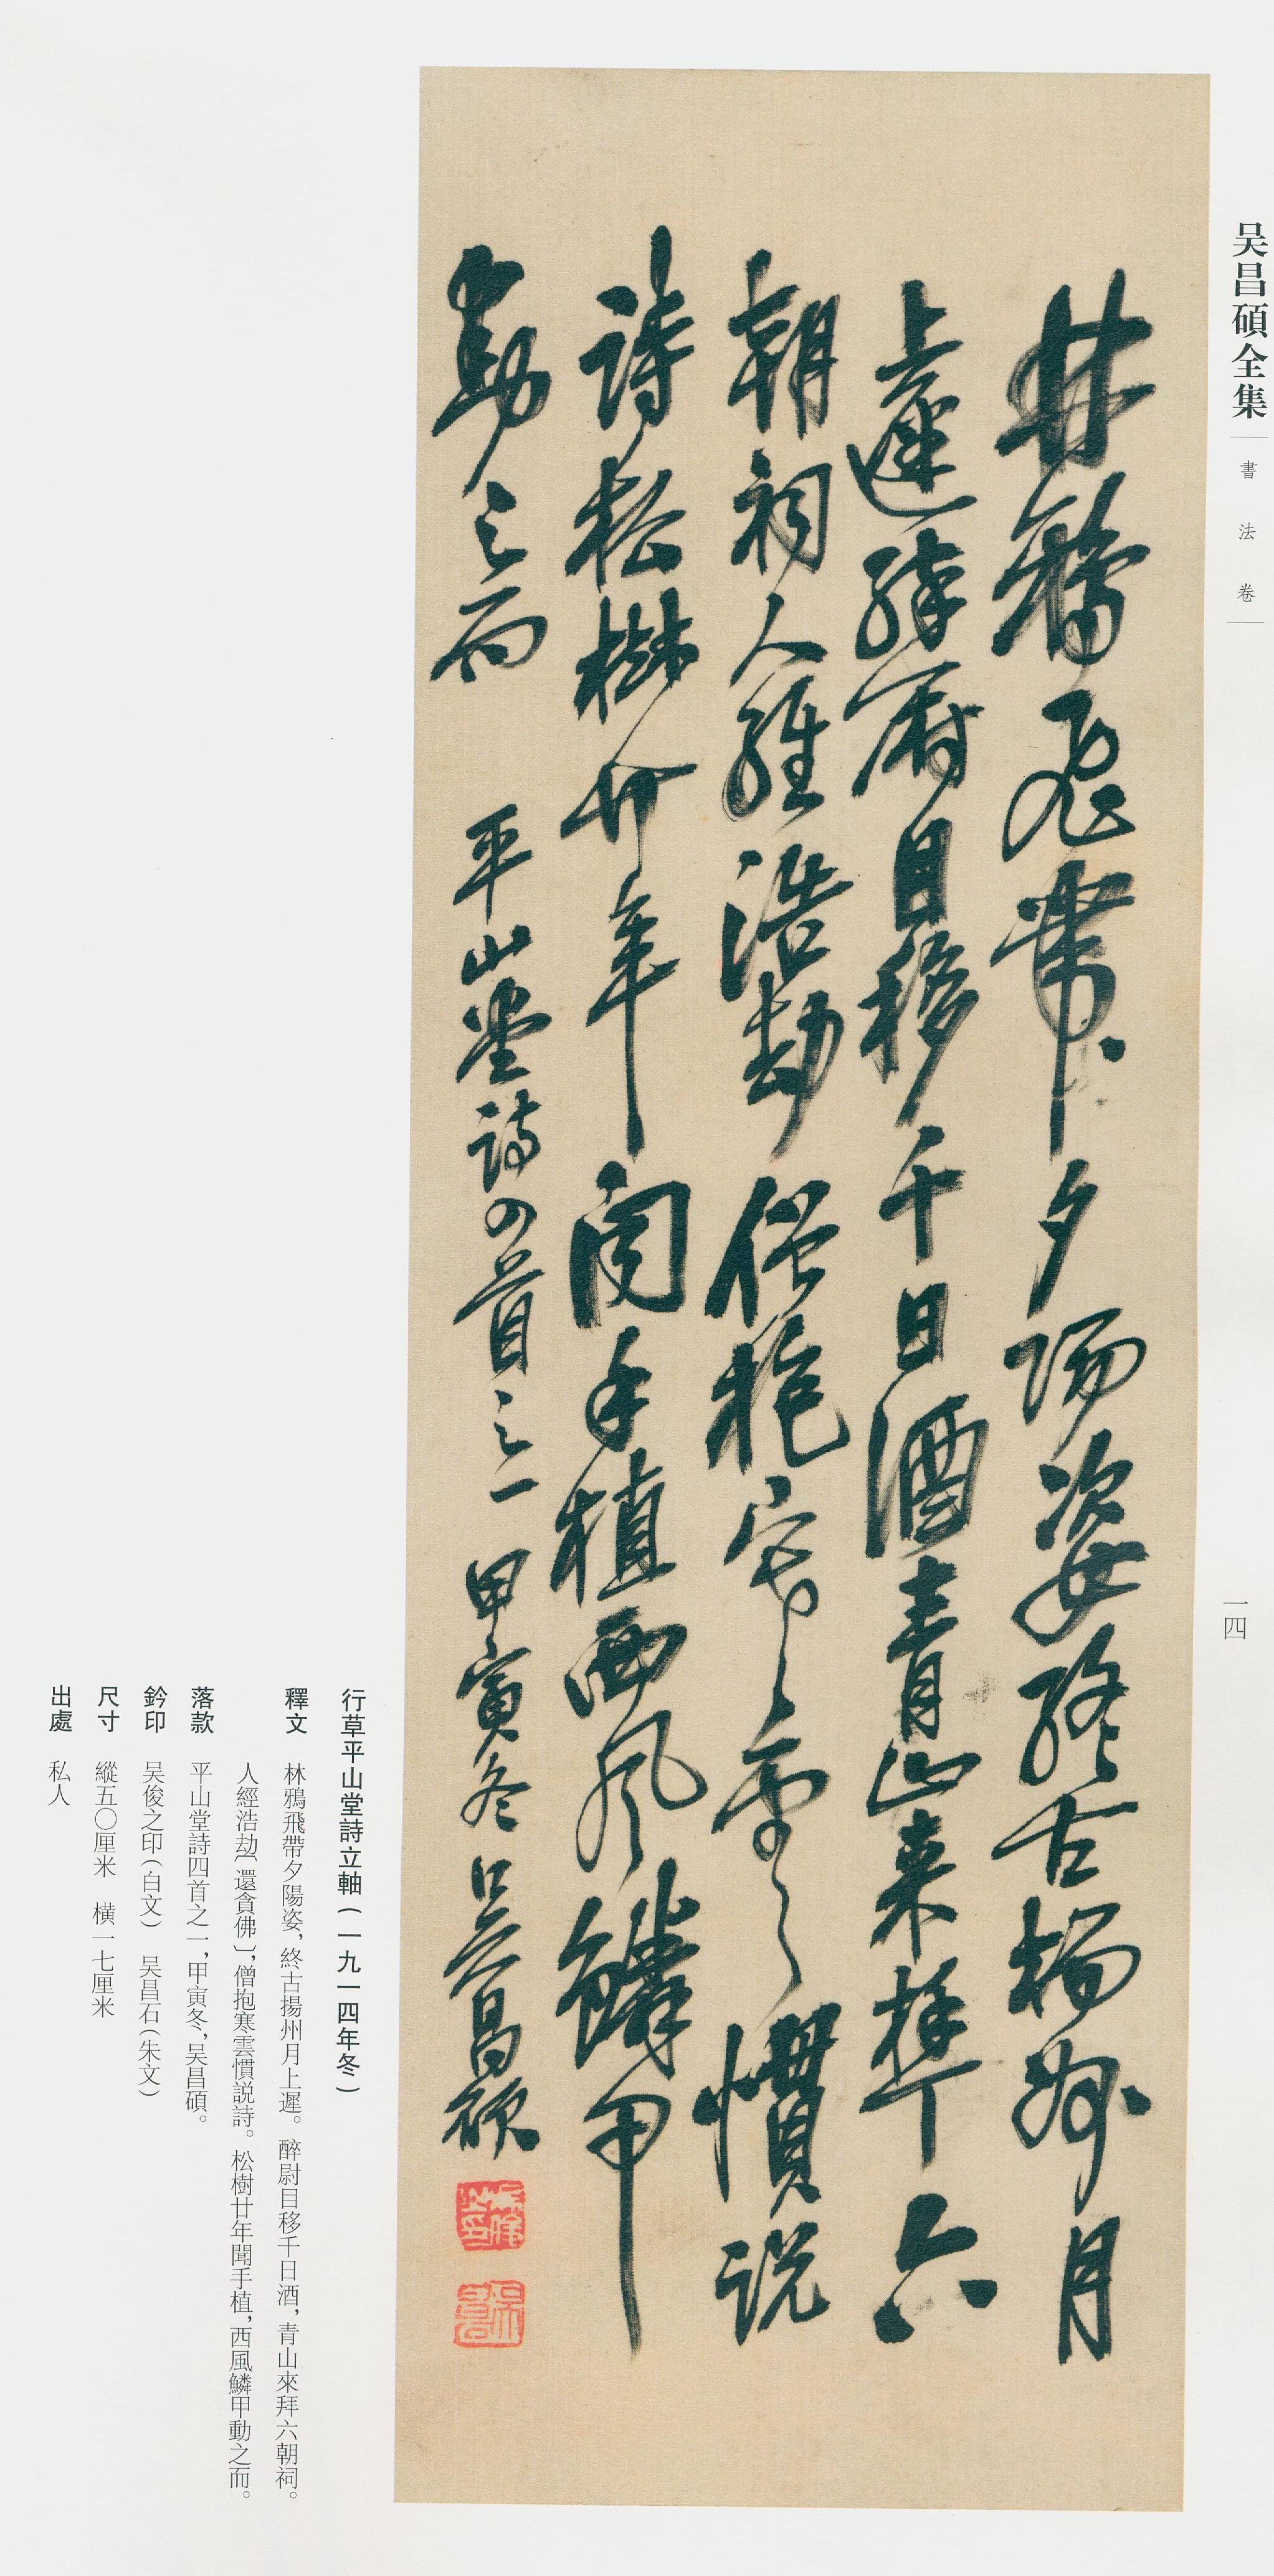 吴昌碩全集
書法卷
一四
林鴉飛帶夕陽姿終古揚州月
上遲醉尉目移千日酒青山来拜六
朝祠人經浩劫僧抱寒雲慣説
詩松樹廿年聞手植西風鱗甲
動之而 平山堂詩四首之一 甲寅冬 吴昌碩
吴俊之印
吴昌石
行草平山堂詩立軸(一九一四年冬)
釋文 林鴉飛帶夕陽姿,終古揚州月上遲。醉尉目移千日酒,青山來拜六朝祠。
人經浩劫〔還貪佛〕,僧抱寒雲慣説詩。松樹廿年聞手植,西風鱗甲動之而。
落款 平山堂詩四首之一,甲寅冬,吴昌碩。
鈐印 吴俊之印(白文) 吴昌石(朱文)
尺寸 縱五〇厘米 横一七厘米
出處 私人